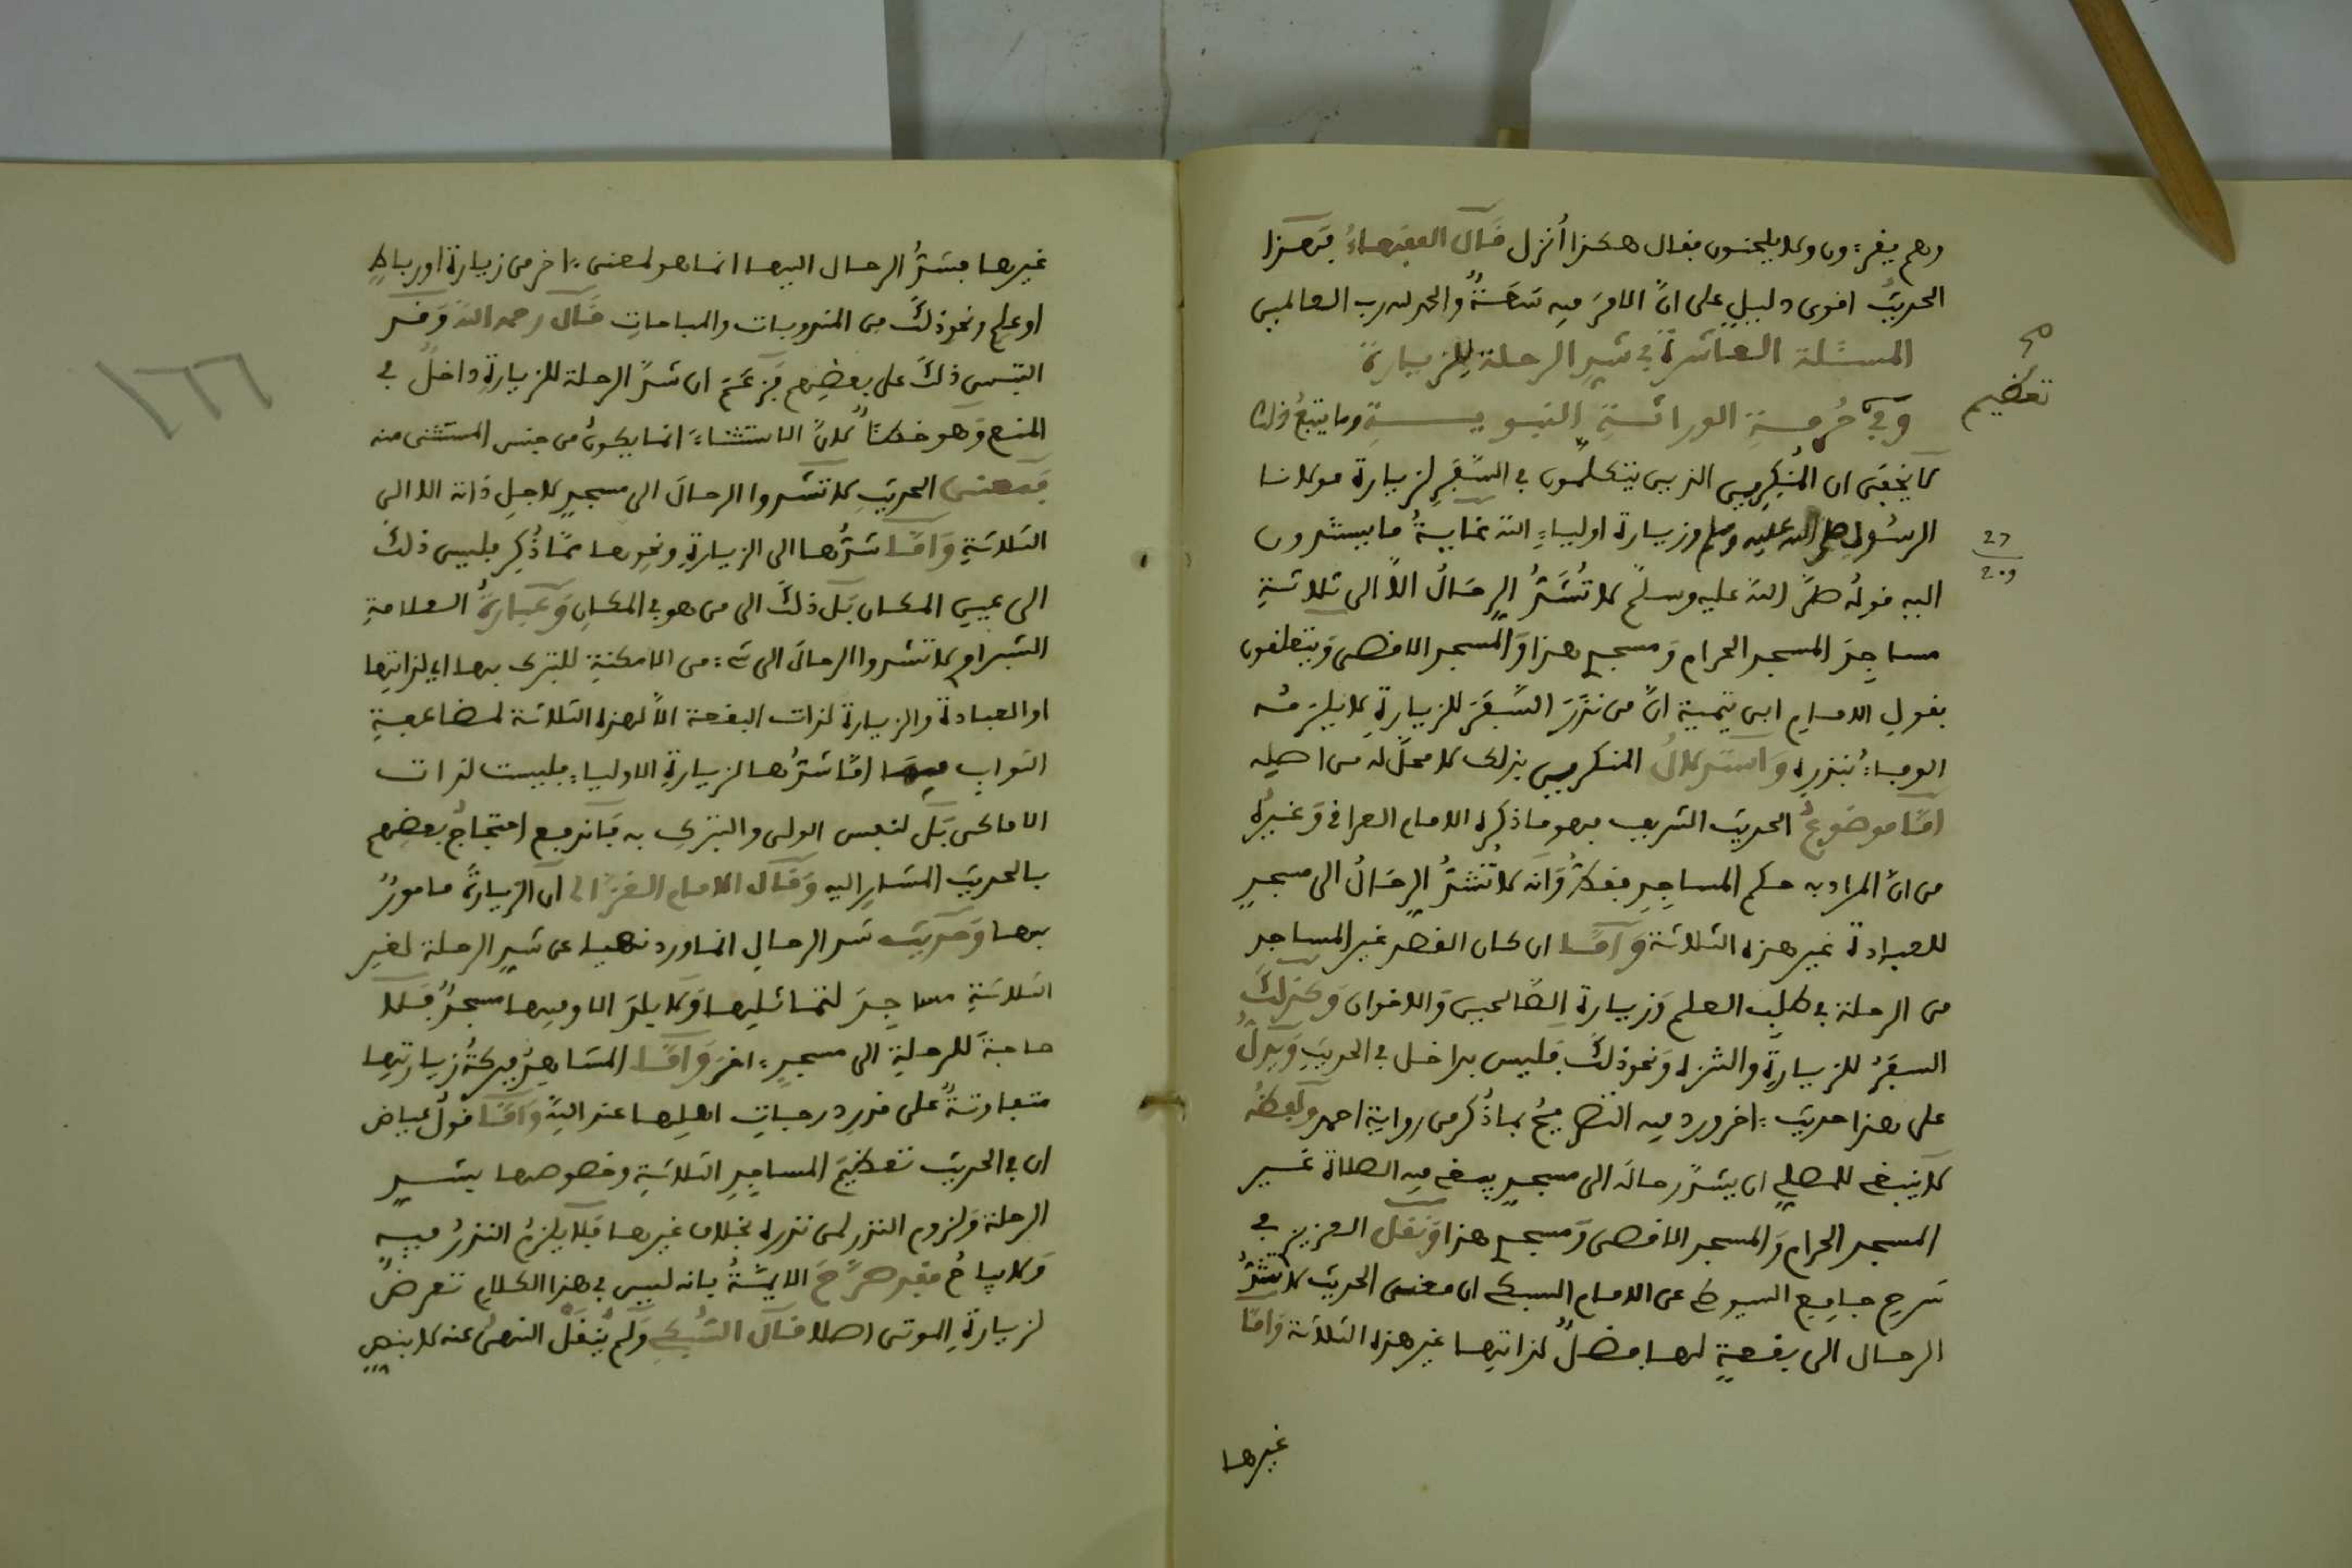 وهم يقرءون ولا يلحنون فقال هكذا أنزل قَالَ الفقهاءُ فَهَذا
الحديثُ اقوى دليلٍ على انَّ الامرَ فيه سَعَةٌ والحمد لله رب العالمين
المسئلة العاشرة في شدِ الرحلة للزيارة
وَفي حُرمةِ الوراثةِ النبويـــةِ وما يتبعُ ذلك
تعظيم
لا يخفَى ان المُنكِرِين الذين يتكلمون في السَّفَرِ لزيارة مولانا
الرسُولِ صلى الله عليه وسلم وزيارة اولياءِ الله غَايةُ ما يستندون
27
209
اليه قولُه صلَّى اللهُ عليه وسلم لا تُشَدُّ الرِحَالُ الَّا الى ثلاثةِ
مساجِدَ المسجد الحرام وَمسجدِي هذا وَالمسجد الاقصى وَيتعلقون
بقولِ الامام ابن تيمية انَّ من نذَرَ السَّفَرَ للزيارةِ لا يلزمُه
الوفاءُ بنذرِه وَاستدلالُ المنكرين بذلك لا محلَّ له من اصلِه
اَمَّا موضوعُ الحديثِ الشريف فهو ما ذكره الامام العراقي وَغيرُه
من انَّ المراد به حكم المساجِدِ فقطْ وَانه لا تُشدُّ الرِحَالُ الى مسجدٍ
للعبادة غير هذه الثلاثة وَاَمَّـا ان كان القصد غير المساجد
من الرحلة في طلَبِ العلم وَزيارة الصَّالحين وَالاخوان وَكذلكَ
السفَرُ للزيارةِ والتنزه وَنحو ذلكَ فليس بداخل في الحديثِ وَيدلُّ
على هذا حديث ءاخر ورد فيه التصريحُ بما ذُكر من رواية احمد ولَفظُه
لا ينبغي للمصلي ان يشدَّ رحالَه الى مسجدٍ يبتغي فيه الصلاة غَـير
المسجد الحرام وَالمسجد الاقصى وَمسجدي هذا وَنقَل العزيزي في
شرح جامِع السيوطي عن الامام السبكي ان معنى الحديث لا تشدُّ
الرحال الى بقعةٍ لها فضلٌ لذاتِها غير هذه الثلاثة وَاَمَّا
غيرها
غيرها فشَدُّ الرحال اليها انما هو لمعنى ءاخر من زيارة او رباطٍ
او علمٍ ونحو ذلكَ من المندوبات والمباحاتِ قَالَ رحمه اللهُ وَقَـد
التبس ذلكَ على بعضِهم فَزعَمَ ان شدَّ الرحلة للزيارةِ داخلٌ في
المنع وَهو خطأٌ لانَّ الاستثناءَ انما يكونُ من جنس المستثنى منه
فَمعنى الحديثِ لا تشدوا الرحالَ الى مسجدٍ لاجلِ ذاته الا الى
الثلاثةِ وَاَمَّـا شَدُّها الى الزيارةِ ونحوها ممَّا ذُكِر فليس ذلك
الى عينِ المكان بَل ذلكَ الى من هو في المكانِ وَعبارةُ العلامةِ
الشبراوي لا تشدوا الرحالَ الى شيءٍ من الامكنةِ للتبرك بها اي لذاتِها
او العبادة والزيارة لذات البقعة الَّا لهذه الثلاثة لمضاعفةِ
الثواب فيهَا امَّا شدُّها لزيارةِ الاولياءِ فليست لذات
الاماكن بَل لنفس الولي والتبركِ به فَاندفع احتجاجُ بعضِهم
بالحديث المشارِ اليه وَقَالَ الامام الغزَّالي اَن الزيارةَ مامورٌ
بها وَحديث شد الرحالِ انما ورد نهيا عن شدِ الرحلة لغيرِ
الثلاثةِ مساجِدَ لتماثلِها وَلا بلدَ الا وفيها مسجدٌ فَلا
حاجةَ للرحلةِ الى مسجدٍ ءاخرَ وَاَمَّـا المشاهدُ فبركةُ زيارتِها
متفاوتةٌ على قدرِ درجاتِ اهلِها عند اللهِ وَاَمَّا قولُ عياض
ان في الحديث تعظيمَ المساجِدِ الثلاثةِ وخصوصها بشـدِ
الرحلة وَلزوم النذر لمن نذره بخلاف غيرها فَلا يلزمُ النذرُ فيهِ
وَلا يباحُ فقد صرَّحَ الايمَّةُ بانه ليس في هذا الكلامِ تعرضٌ
لزيارةِ الموتى اصلا قَالَ السُّبكي وَلم يُنقَلْ النهىُ عنه لا بنصٍ
١٦٦